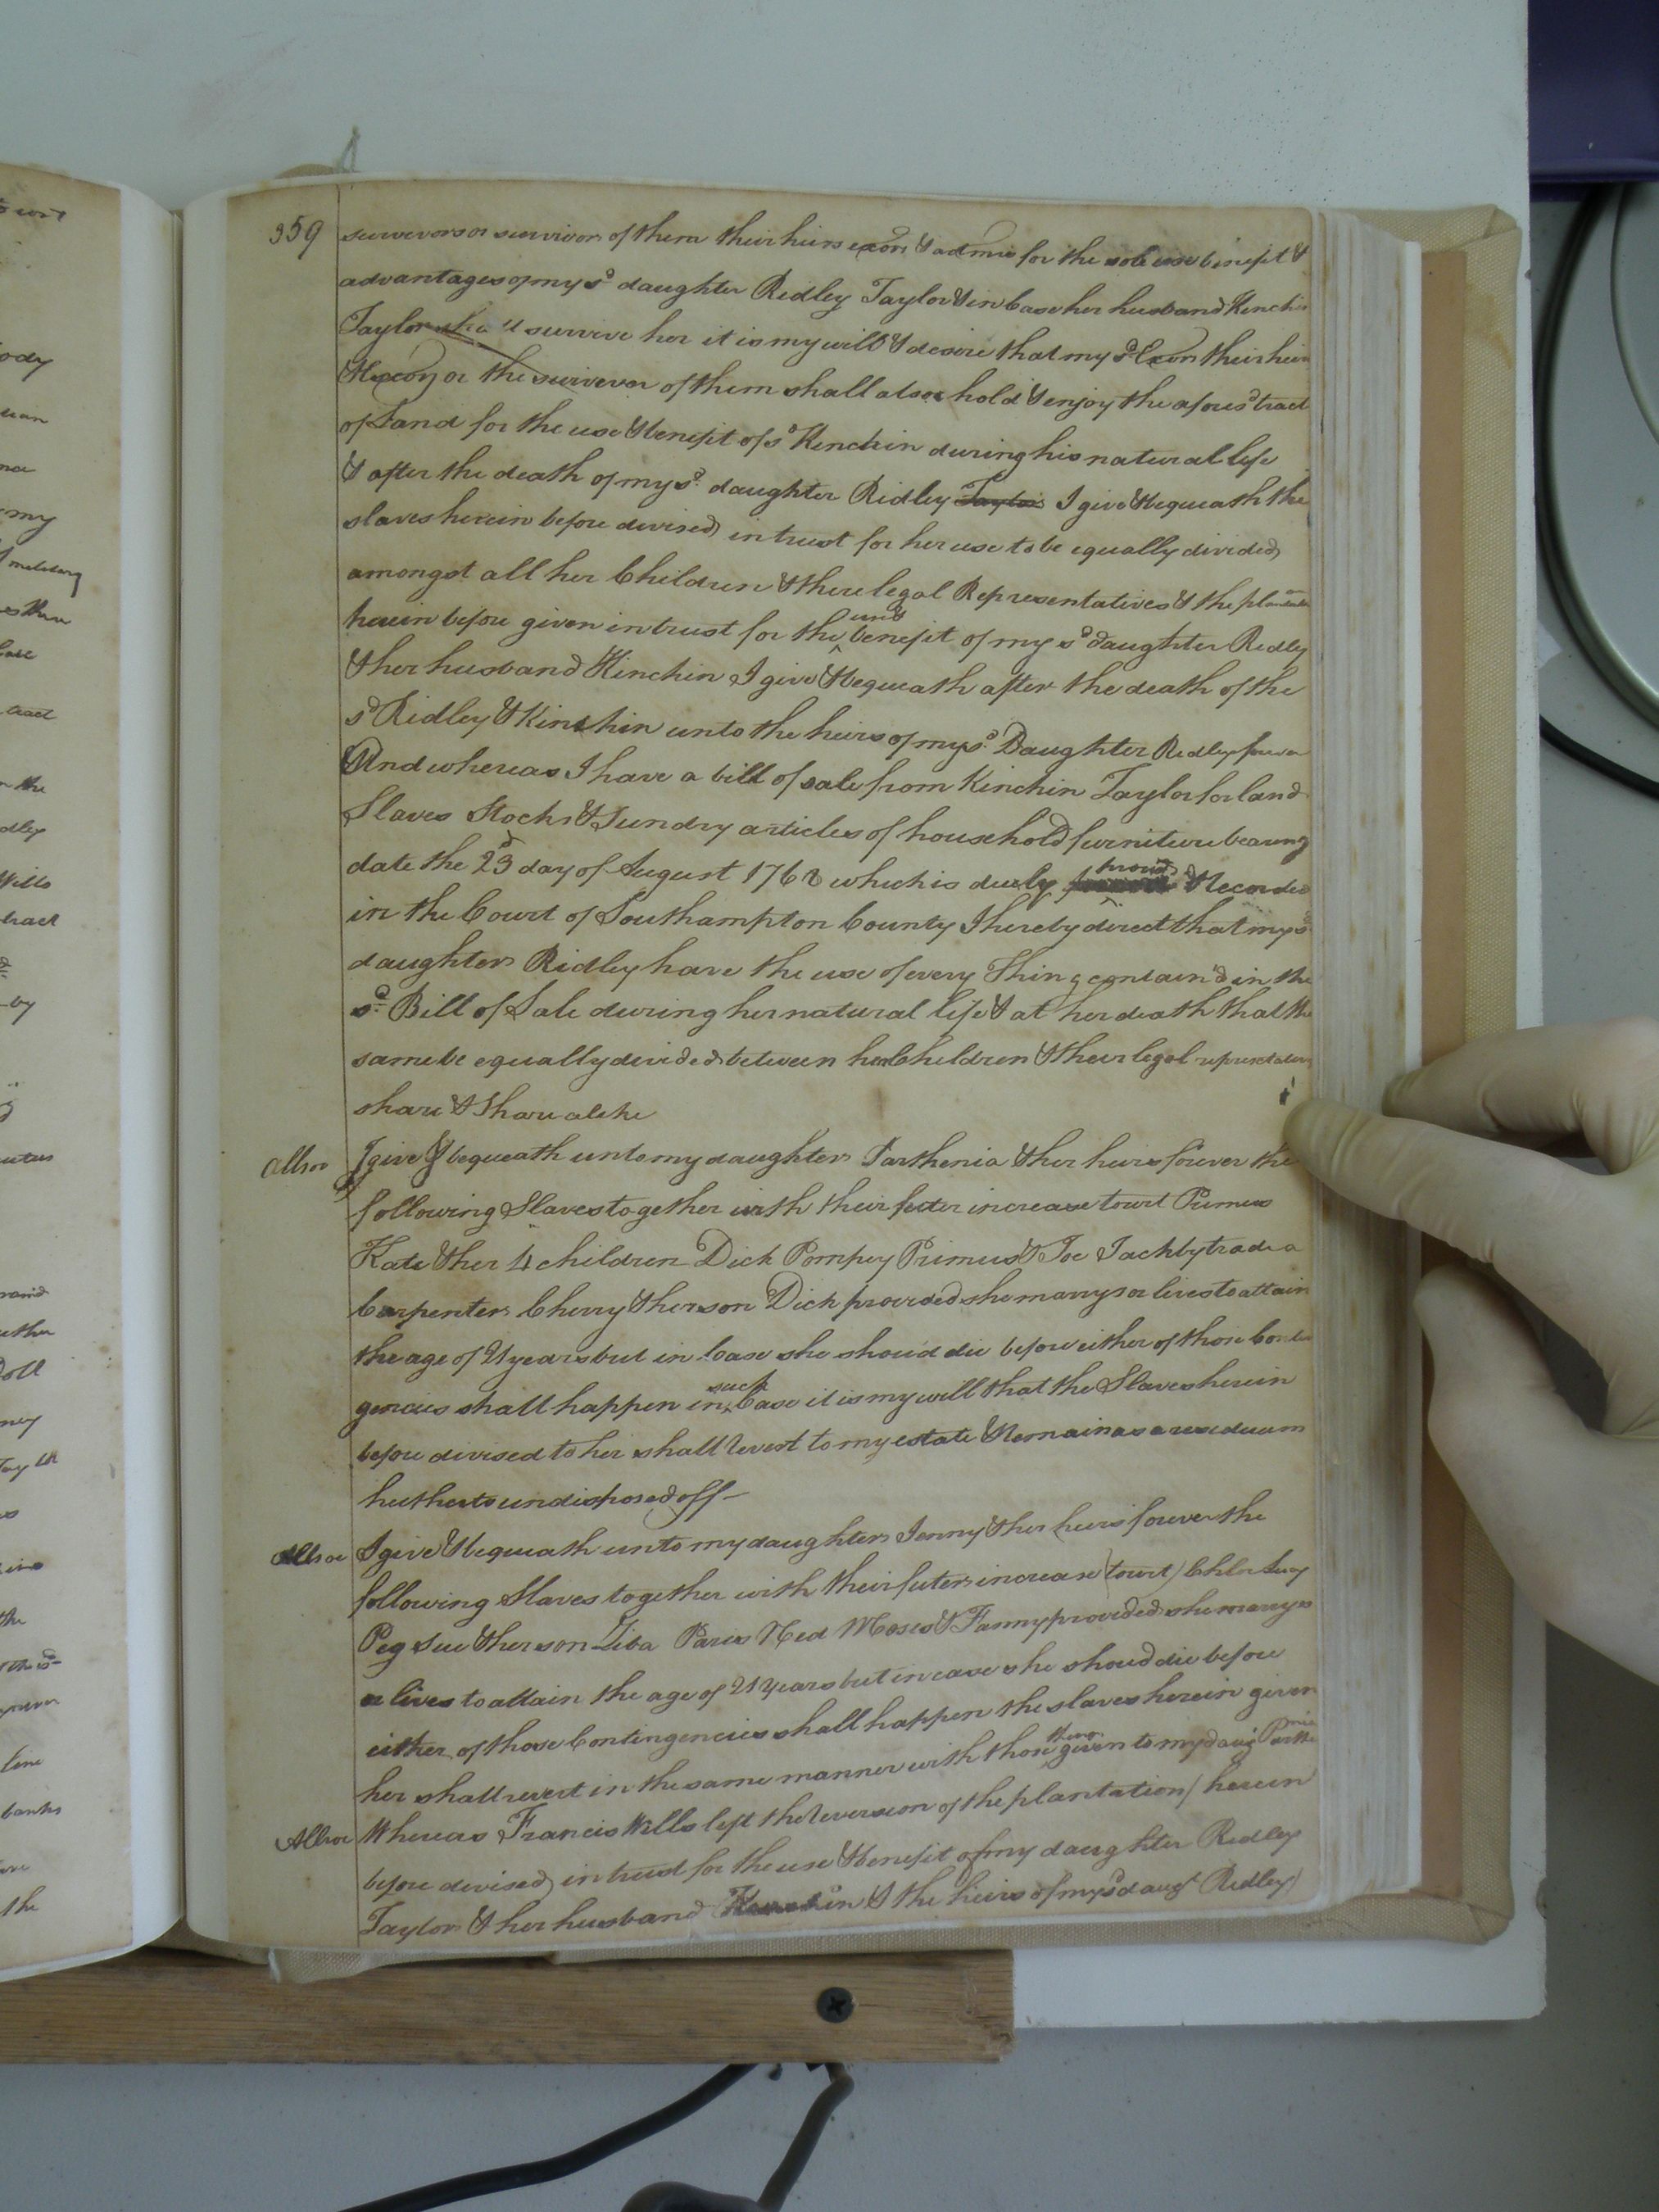 359
survevors or survivor of them their heirs exors & admrs for the sole use benefit &
advantages of my sd daughter Ridley Taylor & in Case her husband Kenchin
Taylor shall survive her it is my will & desire that my sd Exors their heirs
& Exors or the surviver of them shall also hold & enjoy the afores'd tract
of Land for the use & benefit of sd Kenchin during his natural life
& after the death of my sd daughter Ridley Taylor I give & bequeath the
slaves herein before devised in trust for her use to be equally divided
amongst all her Children & there legal Representatives & the plantation
herein before given in trust for the use & benefit of my sd daughter Ridley
& her husband Kinchin I give & bequeath after the death of the
sd Ridley & Kinchin unto the heirs of my sd Daughter Ridley forever
And whereas I have a bill of sale from Kinchin Taylor for land
Slaves Stocks & Sundry articles of household furniture bearing
date the 23d day of August 1762 which is duely proved & Recorded
in the Court of Southampton County I hereby direct that my sd
daughter Ridley have the use of every Thing contain'd in the
sd Bill of Sale during her natural life & at her death that the
same be equally divided between her Children & their legal representatives
share & Share alike
Allsoe I give & bequeath unto my daughter Parthenia & her heirs forever the
following Slaves together with their futer increase towit Primus
Kate & her 4 children Dick Pompey Primus & Joe Jack by trade a
Carpenter Cherry & her son Dick provided she marrys or lives to attain
the age of 21 years but in Case she shoud die before either of those Contin
gencies shall happen in such Case it is my will that the Slaves herein
before divised to her shall revert to my estate & Remain as a residuum
hitherto undisposed off -
Allsoe I give & bequeath unto my daughter Jenny & her heirs forever the
following Slaves together with their futer increase (towit) Chloe Lucy
Peg Sue & her son Ziba Paris Ned Moses & Fanny provided she marrys
or lives to attain the age of 21 years but in case she shoud die before
either of those Contingencies shall happen the slaves herein given
her shall revert in the same manner with those given to my daug Parthenia
Allsoe Whereas Francis Wills left the reversion of the plantation (herein
before devised) in trust for the use & benefit of my daughter Ridley
Taylor & her husband Kinchin & the heirs of my sd daugt Ridley)